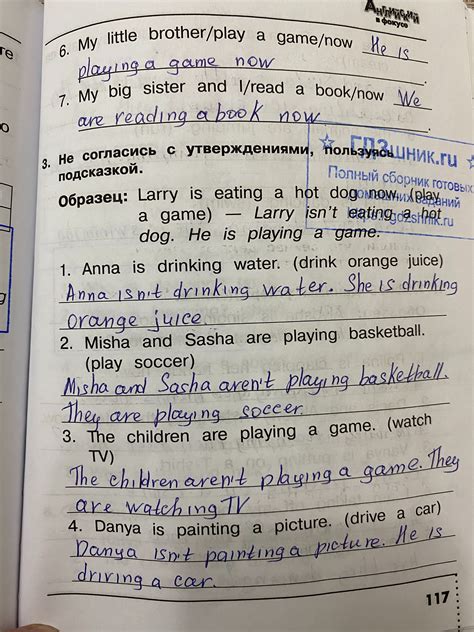 Английский
в фокусе
6. My little brother/play a game/now He is
playing a game now
7. My big sister and I/read a book/now We
are reading a book now
ГДЗшник.ru
3. Не согласись с утверждениями, пользуясь
подсказкой.
Полный сборник готовых
домашних заданий
Образец: Larry is eating a hot dog now. (play
a game) — Larry isn't eating a hot
dog. He is playing a game.
1. Anna is drinking water. (drink orange juice)
Anna isn't drinking water. She is drinking
orange juice.
2. Misha and Sasha are playing basketball.
(play soccer)
Misha and Sasha aren't playing basketball.
They are playing soccer.
3. The children are playing a game. (watch
TV)
The children aren't playing a game. They
are watching TV
4. Danya is painting a picture. (drive a car)
Danya isn't painting a picture. He is
driving a car.
117